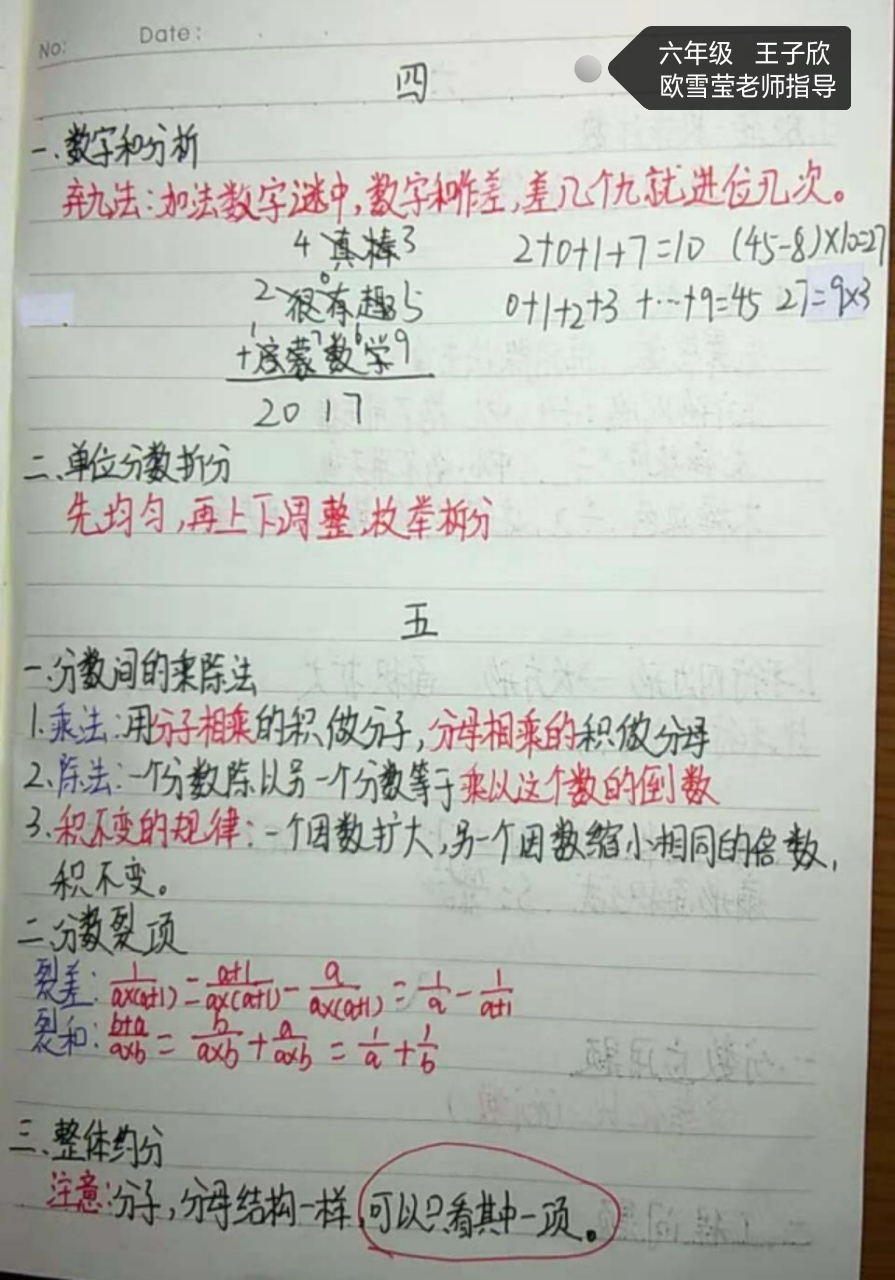 No: Date:
六年级 王子欣
欧雪莹老师指导
四
一、数字和分析
弃九法:加法数字谜中,数字和作差,差几个九就进位几次。
4 真棒3 2+0+1+7=10 (45-8)×10=27
2 很0有趣5 0+1+2+3+…+9=45 27=9×3
+1 蒙7数6学9
2017
二、单位分数折分
先均匀,再上下调整,枚举拆分
五
一、分数间的乘除法
1.乘法:用分子相乘的积做分子,分母相乘的积做分母
2.除法:一个分数除以另一个分数等于乘以这个数的倒数
3.积不变的规律:一个因数扩大,另一个因数缩小相同的倍数,
积不变。
二、分数裂项
裂差:1/a×(a+1)=a+1/a×(a+1)-a/a×(a+1)=1/a-1/a+1
裂和:b+a/a×b=b/a×b+a/a×b=1/a+1/b
三、整体约分
注意:分子,分母结构一样,可以只看其中一项。